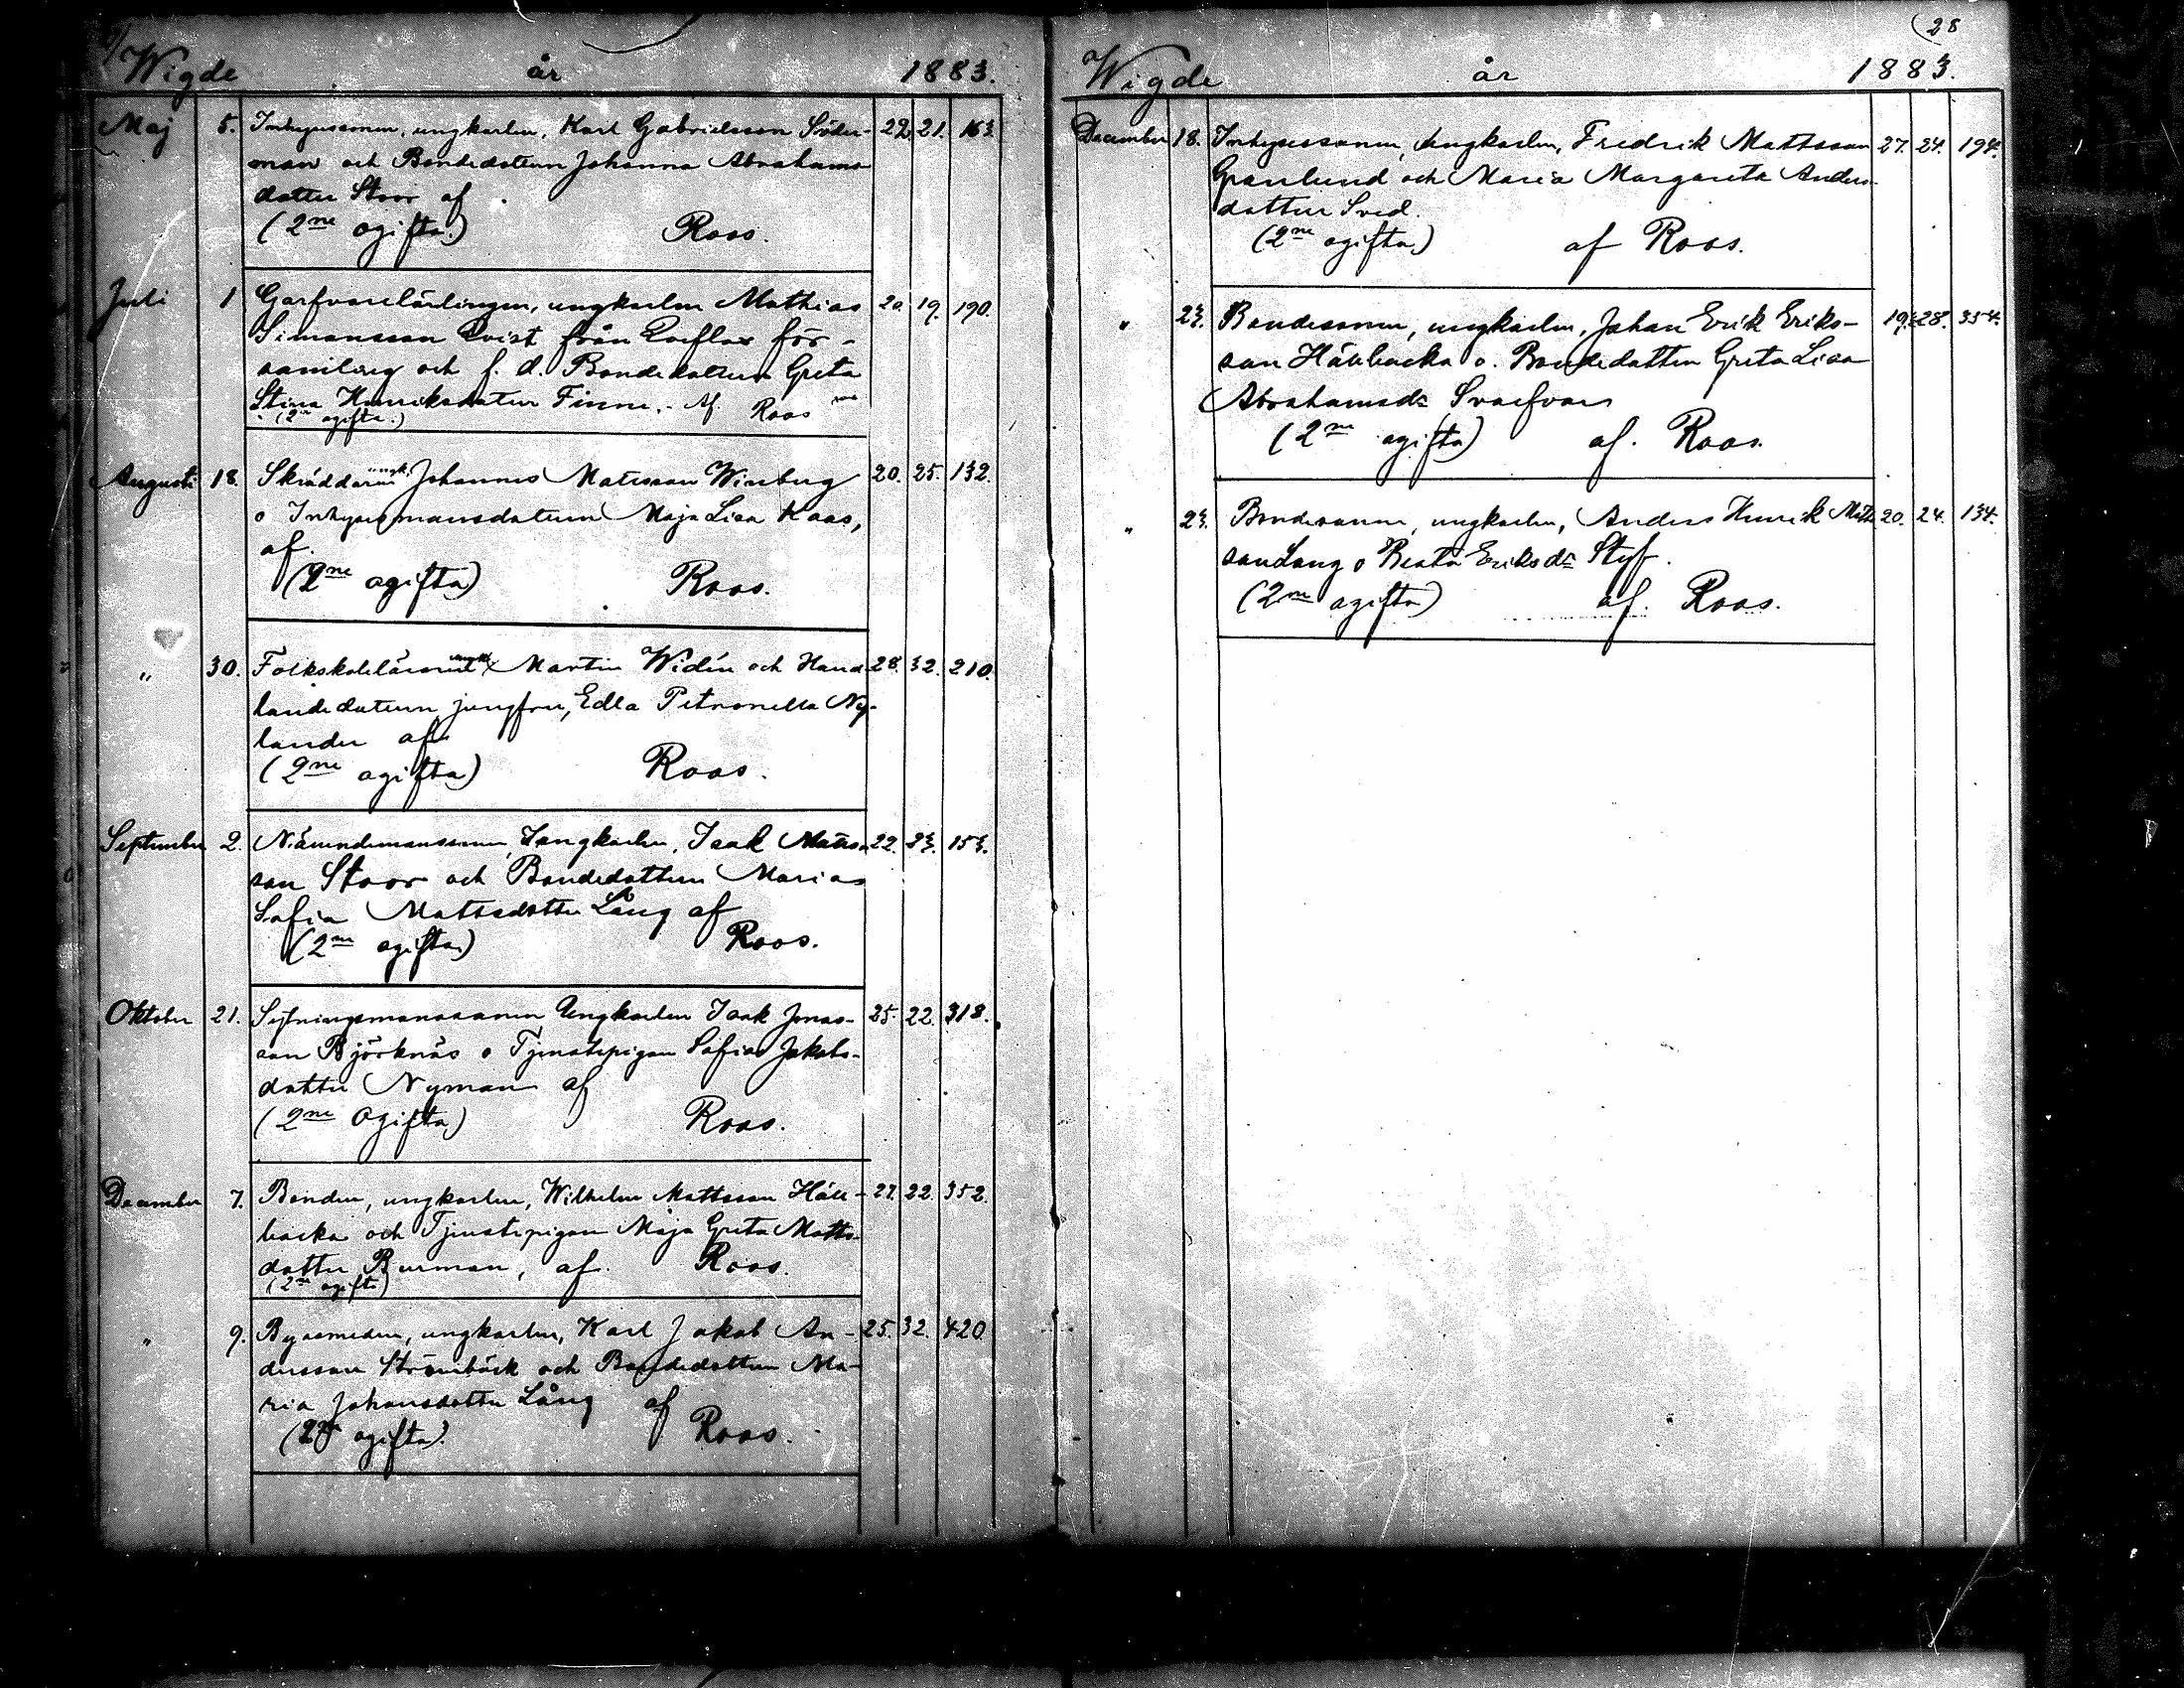 Wigde år 1883.
Maj 5. Inhysessonen, ungkarlen, Karl Gabrielsson Söder- 22. 21. 163.
man och Bondedottern Johanna Abrahams
dotter Stoor af
(2ne ogifta.) Roos.
Juli 1 Garfvarelärlingen, ungkarlen Mathias 20. 19. 190.
Simonsson Qvist från för-
samling och f. d. Bondedottern Greta
Stina Henriksdotter Finne. Af. Roos
(2ne ogifta.)
Augusti 18. Skräddaren ungk. Johannes Matsson Winberg 20. 25. 132.
o Inhysesmansdottern Maja Lisa Kaas,
af.
(2ne ogifta) Roos.
" 30. Folkskoleläraren Martin Widén och Hand 28. 32. 210.
landedottern jungfru, Edla Petronella Ny-
lander af
(2ne ogifta) Roos.
September 2. Nämndemanssonen, Ungkarlen, Isak Mats 22. 23. 153.
son Stoor och Bondedottern Maria
Sofia Mattsdotter Lång af
(2ne ogifta) Roos.
Oktober 21. Sytningsmanssonen Ungkarlen Isak Jonas- 25. 22. 318.
son Björknäs o Tjenstepigan Sofia Jakobs-
dotter Nyman af
(2ne Ogifta) Roos.
December 7. Bonden, ungkarlen, Wilhelm Mattsson Häll- 27. 22. 352.
backa och Tjenstepigan Maja Greta Matts-
dotter Burman, af. Roos.
(2ne ogifta)
" 9. Bysmeden, ungkarlen, Karl Jakob An- 25. 32. 420.
dersson Strömbäck och Bondedottern Ma-
ria Johansdotter Lång af
(2ne ogifta). Roos.
28
Wigde år 1883.
December 18. Inhysessonen, Ungkarlen, Fredrik Mattsson 27. 24. 194.
Granlund och Maria Margareta Anders-
dotter Sved.
(2ne ogifta) af Roos.
" 23. Bondesonen, ungkarlen, Johan Erik Eriks- 19. 28. 354.
son Hällbacka o. Bondedottern Greta Lisa
Abrahamsdr Svarfvar
(2ne ogifta) af. Roos.
" 23. Bondesonen, ungkarlen, Anders Henrik Matts 20. 24. 134.
son Lång o Beata Eriksdr Styf.
(2ne ogifta) af. Roos.